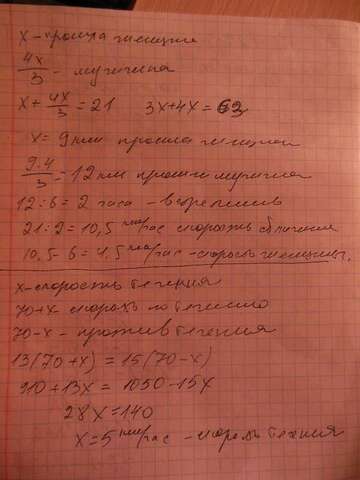 x - прошла женщина
4x/3 - мужчина
x + 4x/3 = 21 3x+4x = 63
x = 9 км прошла женщина
9·4/3 = 12 км прошел мужчина
12:6 = 2 часа - встретились
21:2 = 10,5 км/час скорость сближения
10,5 - 6 = 4,5 км/час - скорость женщины.
x - скорость течения
70+x - скорость по течению
70-x - против течения
13(70+x) = 15(70-x)
910+13x = 1050-15x
28x = 140
x = 5 км/час - скорость течения